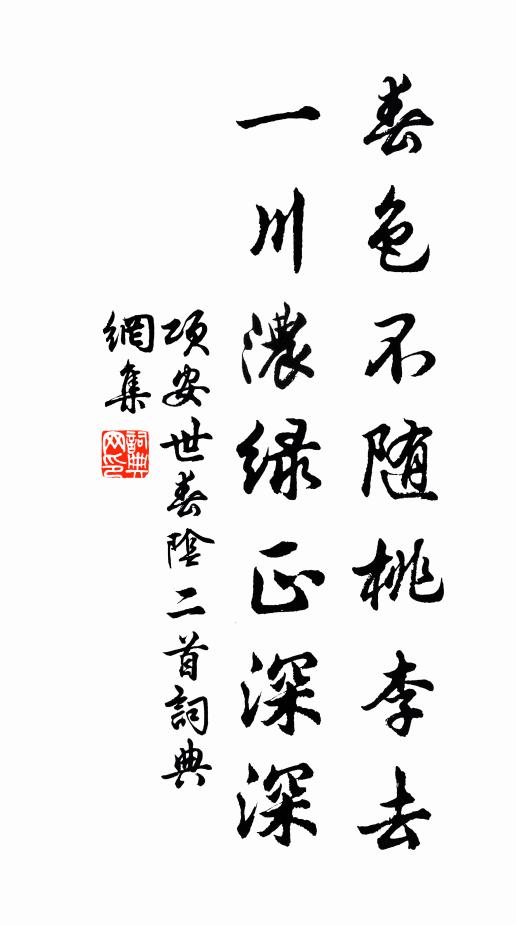 春色不随桃李去
一川濃绿正深深
项安世春陰二首詞典
網集
詞典
网印